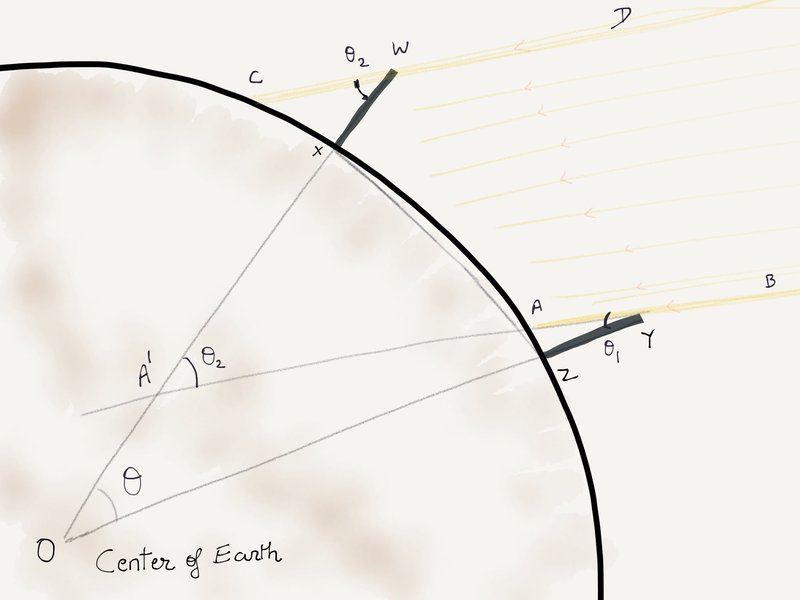 D
θ₂ W
C
x
B
A
θ₁ Y
Z
A' θ₂
θ
O Center of Earth